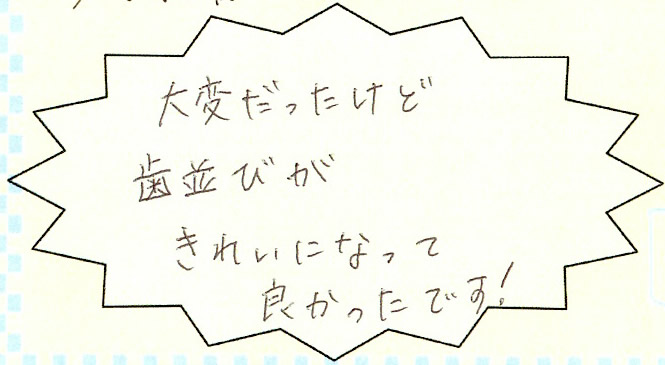 大変だったけど
歯並びが
きれいになって
良かったです!